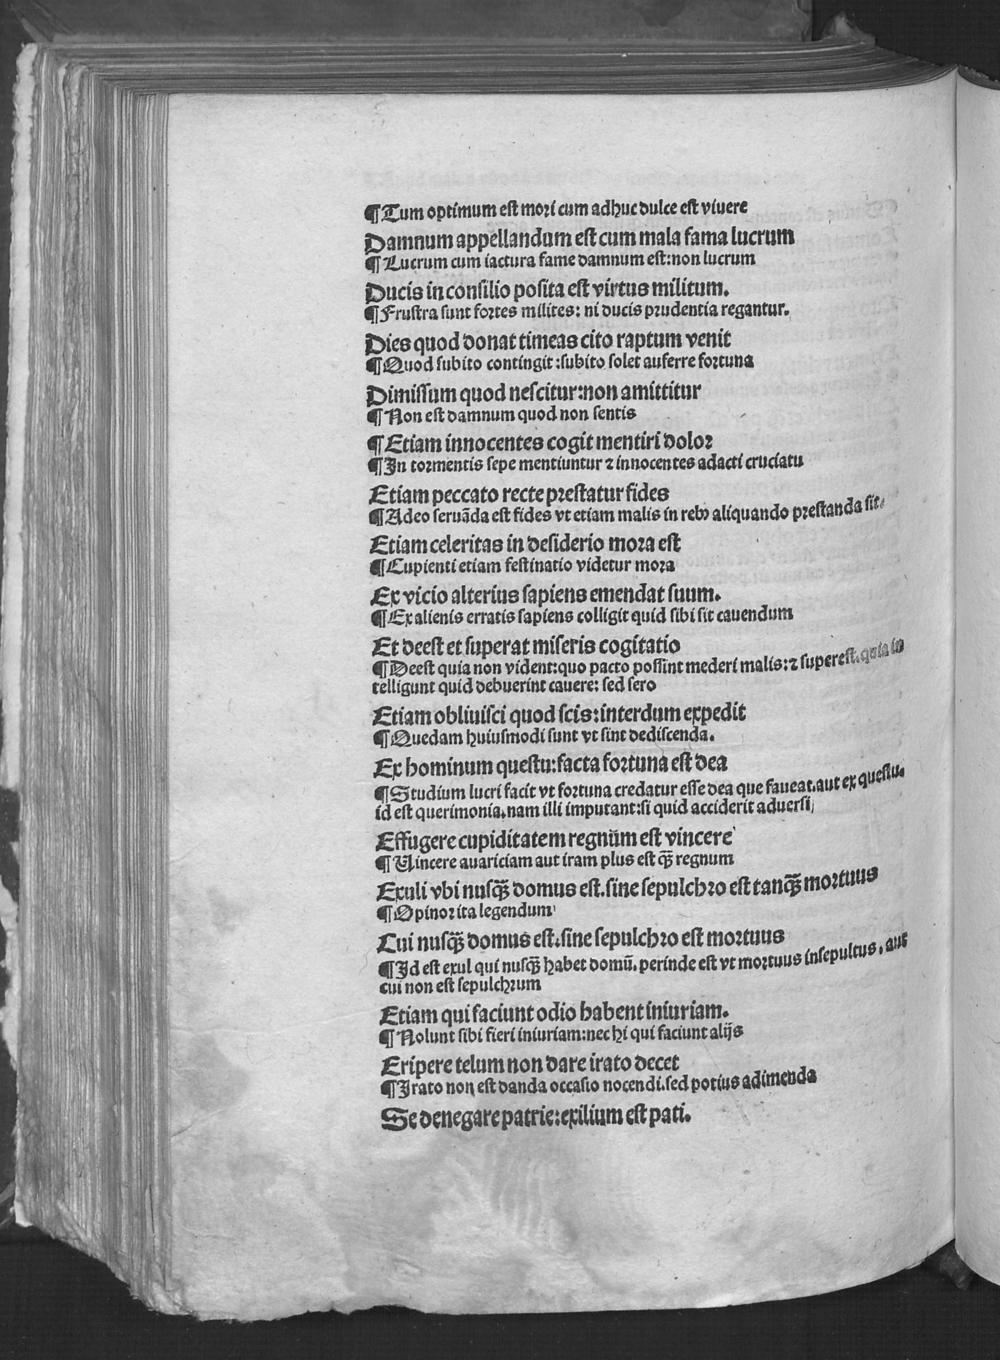 ¶ Tum optimum est mori cum adhuc dulce est vivere
Damnum appellandum est cum mala fama lucrum
¶ Lucrum cum iactura fame damnum est: non lucrum
Ducis in consilio posita est virtus militum.
¶ Frustra sunt fortes milites: ni ducis prudentia regantur.
Dies quod donat timeas cito raptum venit
¶ Quod subito contingit: subito solet auferre fortuna
Dimissum quod nescitur: non amittitur
¶ Non est damnum quod non sentis
¶ Etiam innocentes cogit mentiri dolor
¶ In tormentis sepe mentiuntur ⁊ innocentes adacti cruciatu
Etiam peccato recte prestatur fides
¶ Adeo seruāda est fides vt etiam malis in rebꝰ aliquando prestanda sit.
Etiam celeritas in desiderio mora est
¶ Cupienti etiam festinatio videtur mora
Ex vicio alterius sapiens emendat suum.
¶ Ex alienis erratis sapiens colligit quid sibi sit cauendum
Et deest et superat miseris cogitatio
¶ Deest quia non vident: quo pacto possint mederi malis: ⁊ superest. quia in
telligunt quid debuerint cauere: sed sero
Etiam obliuisci quod scis: interdum expedit
¶ Quedam huiusmodi sunt vt sint dediscenda.
Ex hominum questu: facta fortuna est dea
¶ Studium lucri facit vt fortuna credatur esse dea que faueat. aut ex questu.
id est querimonia. nam illi imputant: si quid acciderit aduersi
Effugere cupiditatem regnūm est vincere
¶ Vincere auariciam aut iram plus est qȝ regnum
Exuli vbi nusqȝ domus est. sine sepulchro est tanqȝ mortuus
¶ Opinor ita legendum
Cui nusqȝ domus est. sine sepulchro est mortuus
¶ Id est exul qui nusqȝ habet domū. perinde est vt mortuus insepultus. aut
cui non est sepulchrum
Etiam qui faciunt odio habent iniuriam.
¶ Nolunt sibi fieri iniuriam: nec hi qui faciunt alijs
Eripere telum non dare irato decet
¶ Irato non est danda occasio nocendi. sed potius adimenda
Se denegare patrie: exilium est pati.